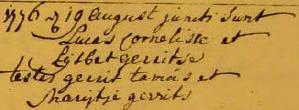 1776 19 August juncti Sunt
Lucas Cornelisse et
Lijsbet gerritse
testes gerrit tamis et
marijtje gerrits